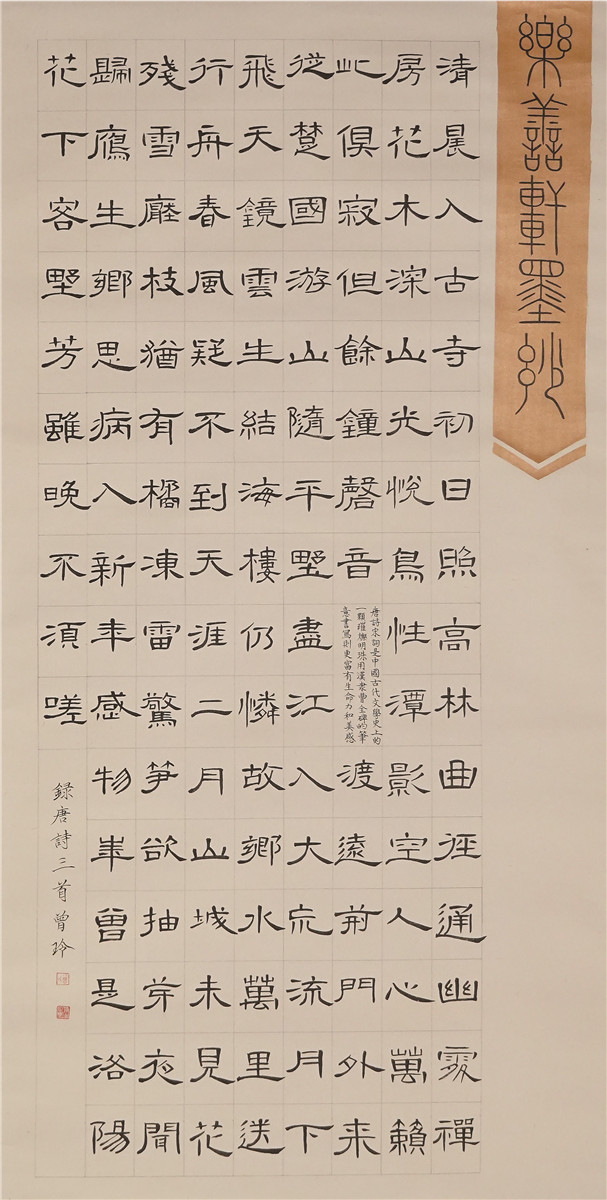 樂善軒墨妙
清晨入古寺初日照高林曲徑通幽處禪
房花木深山光悅鳥性潭影空人心萬籟
此俱寂但餘鐘磬音
唐詩宋詞是中國古代文學史上的
一顆璀璨明珠用漢隸曹全碑的筆
意書寫則更富有生命力和美感
渡遠荊門外来
從楚國游山隨平野盡江入大荒流月下
飛天鏡雲生結海樓仍憐故鄉水萬里送
行舟春風疑不到天涯二月山城未見花
殘雪壓枝猶有橘凍雷驚笋欲抽芽夜聞
歸鴈生鄉思病入新年感物華曾是洛陽
花下客野芳雖晚不須嗟
録唐詩三首曾玲